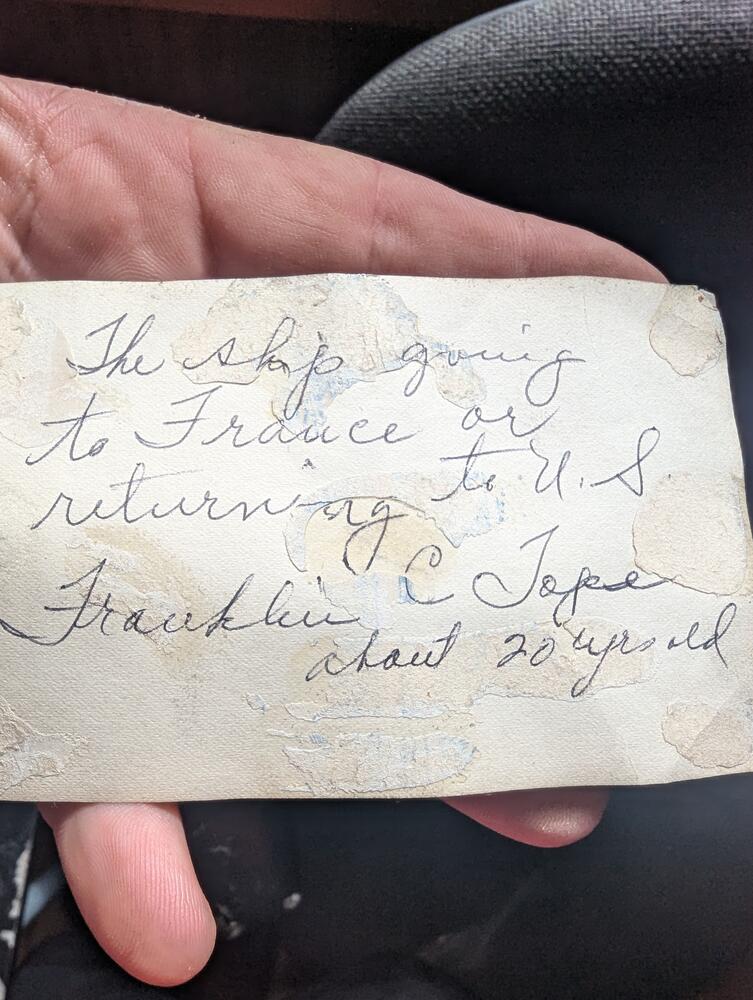 The ship going
to France or
returning to U.S.
Franklin C Tope
about 20 yrs old